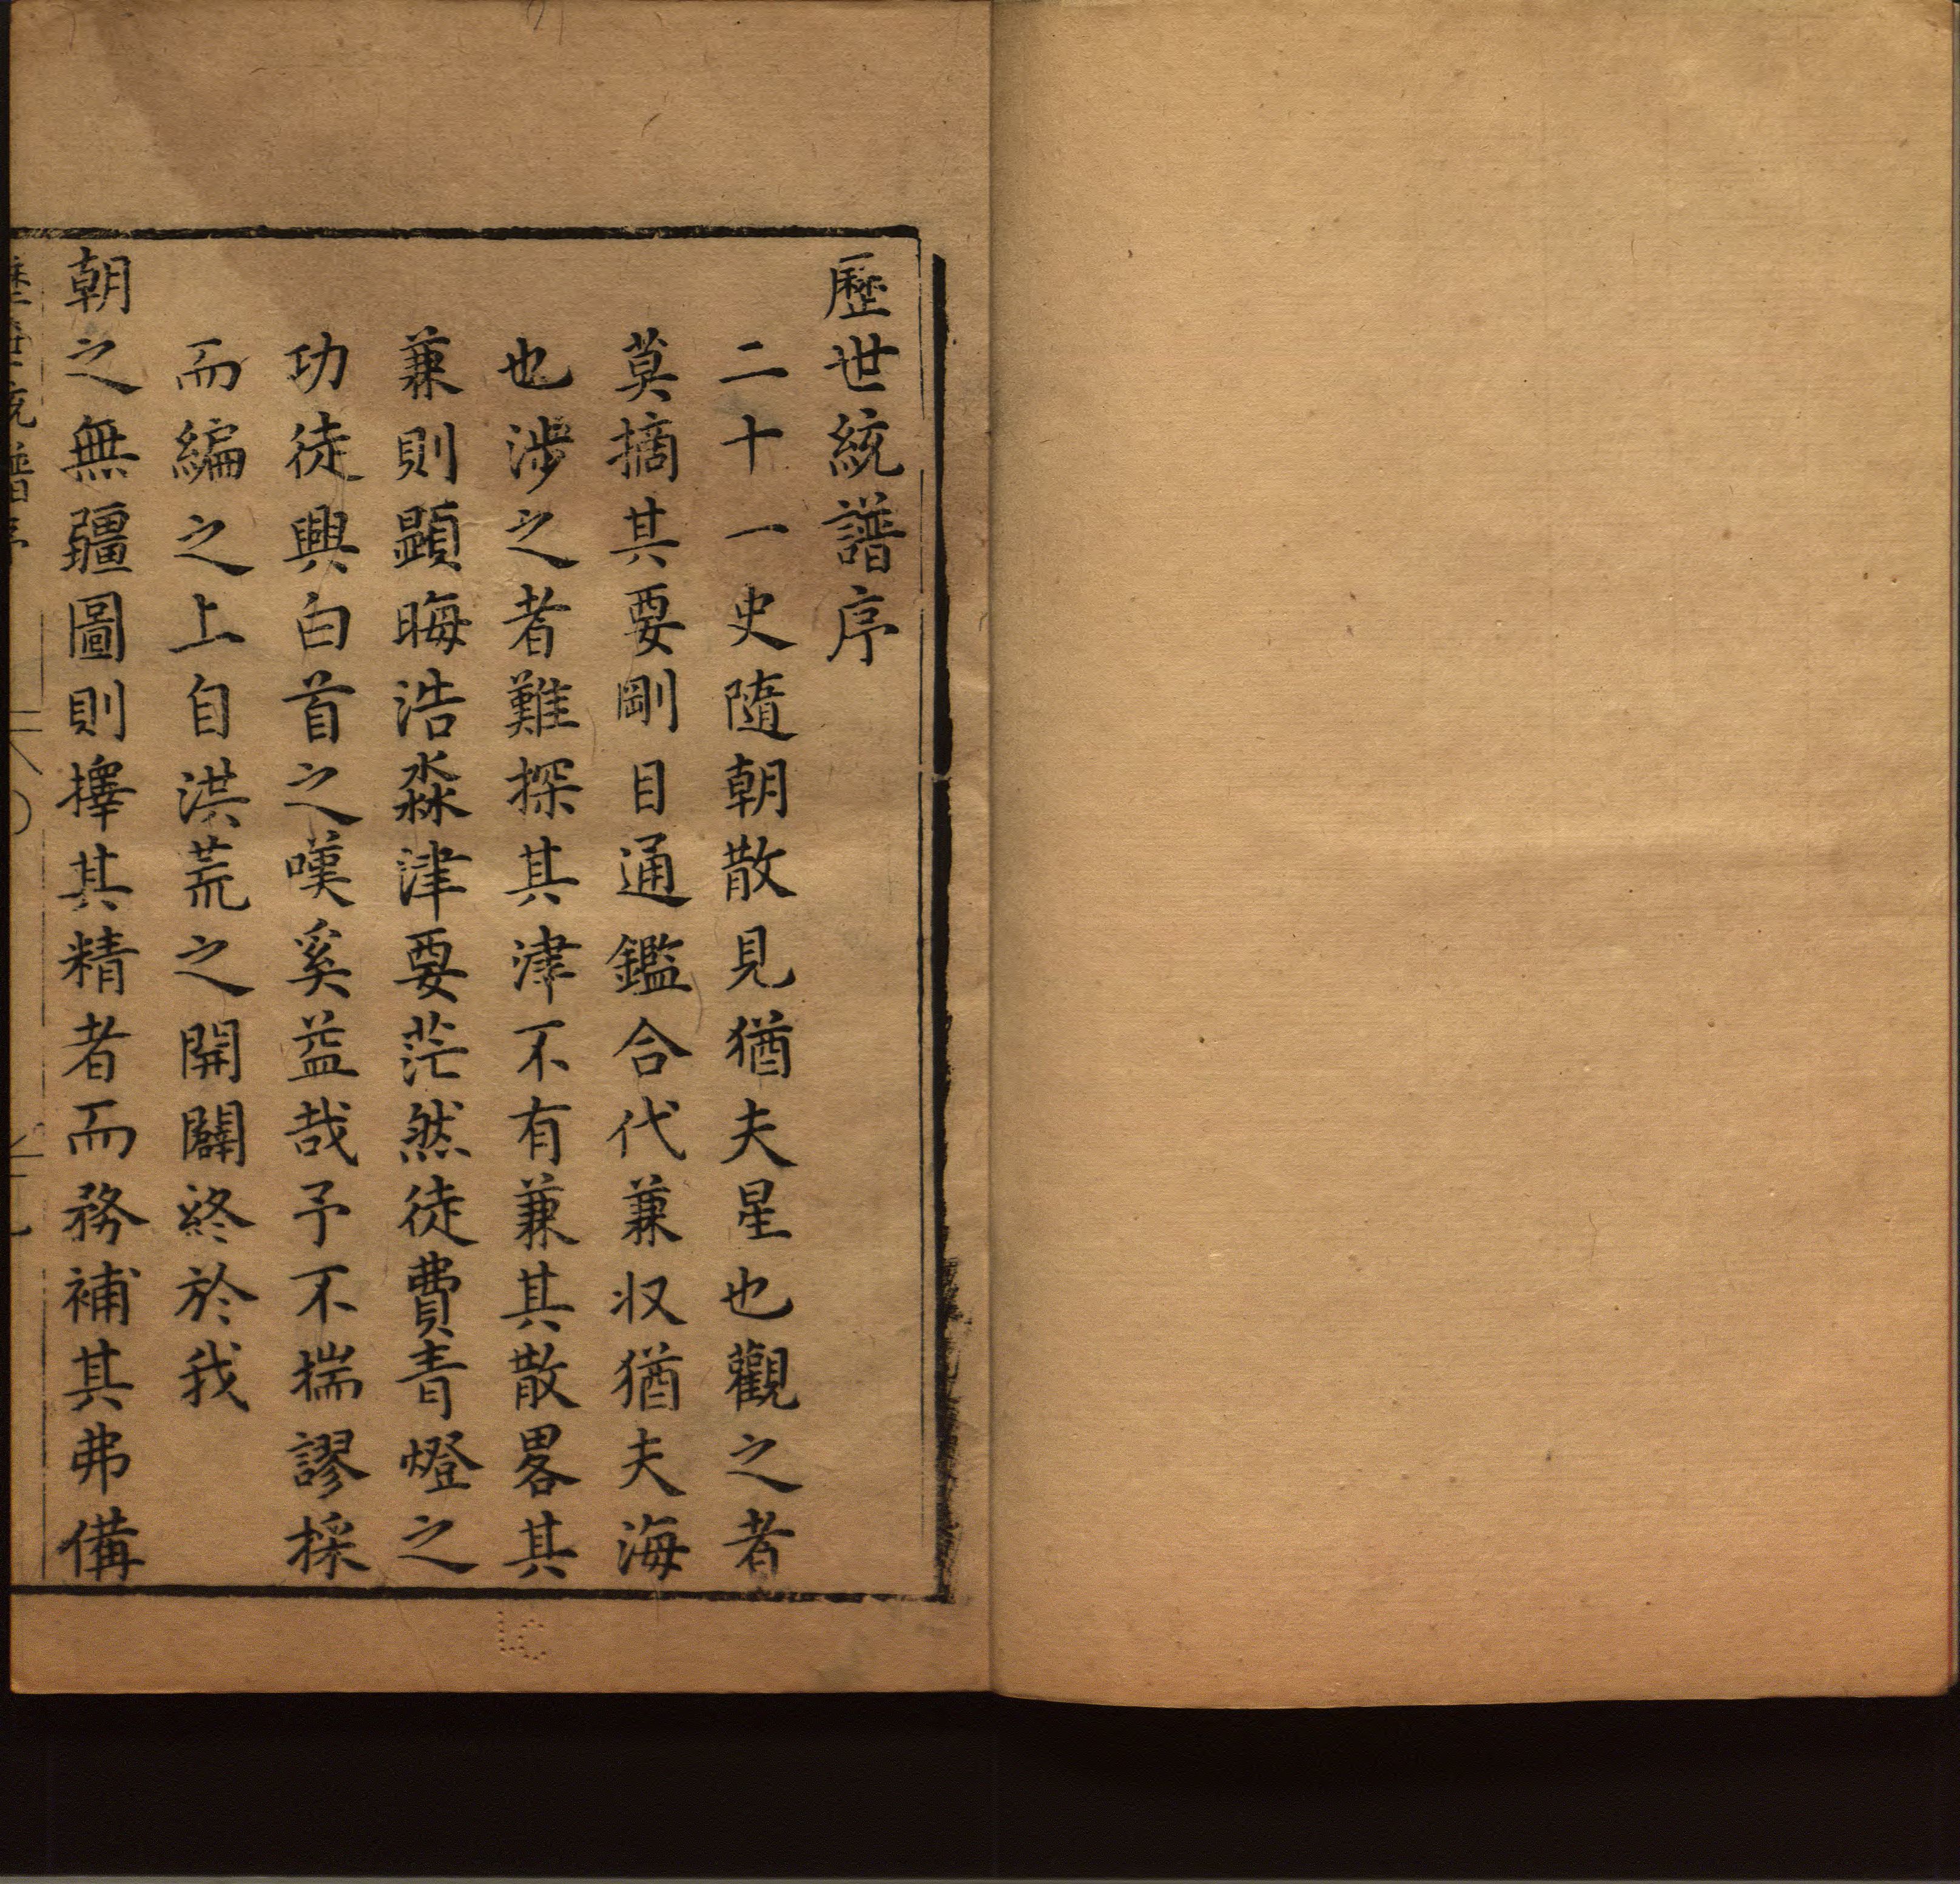 歷世統譜序
二十一史隨朝散見猶夫星也觀之者
莫摘其要剛目通鑑合代兼収猶夫海
也涉之者難探其津不有兼其散畧其
兼則顕晦浩淼津要茫然徒費青燈之
功徒興白首之嘆奚益哉予不揣謬採
而編之上自洪荒之開闢終於我
朝之無疆圖則擇其精者而務補其弗備
歷世統譜序